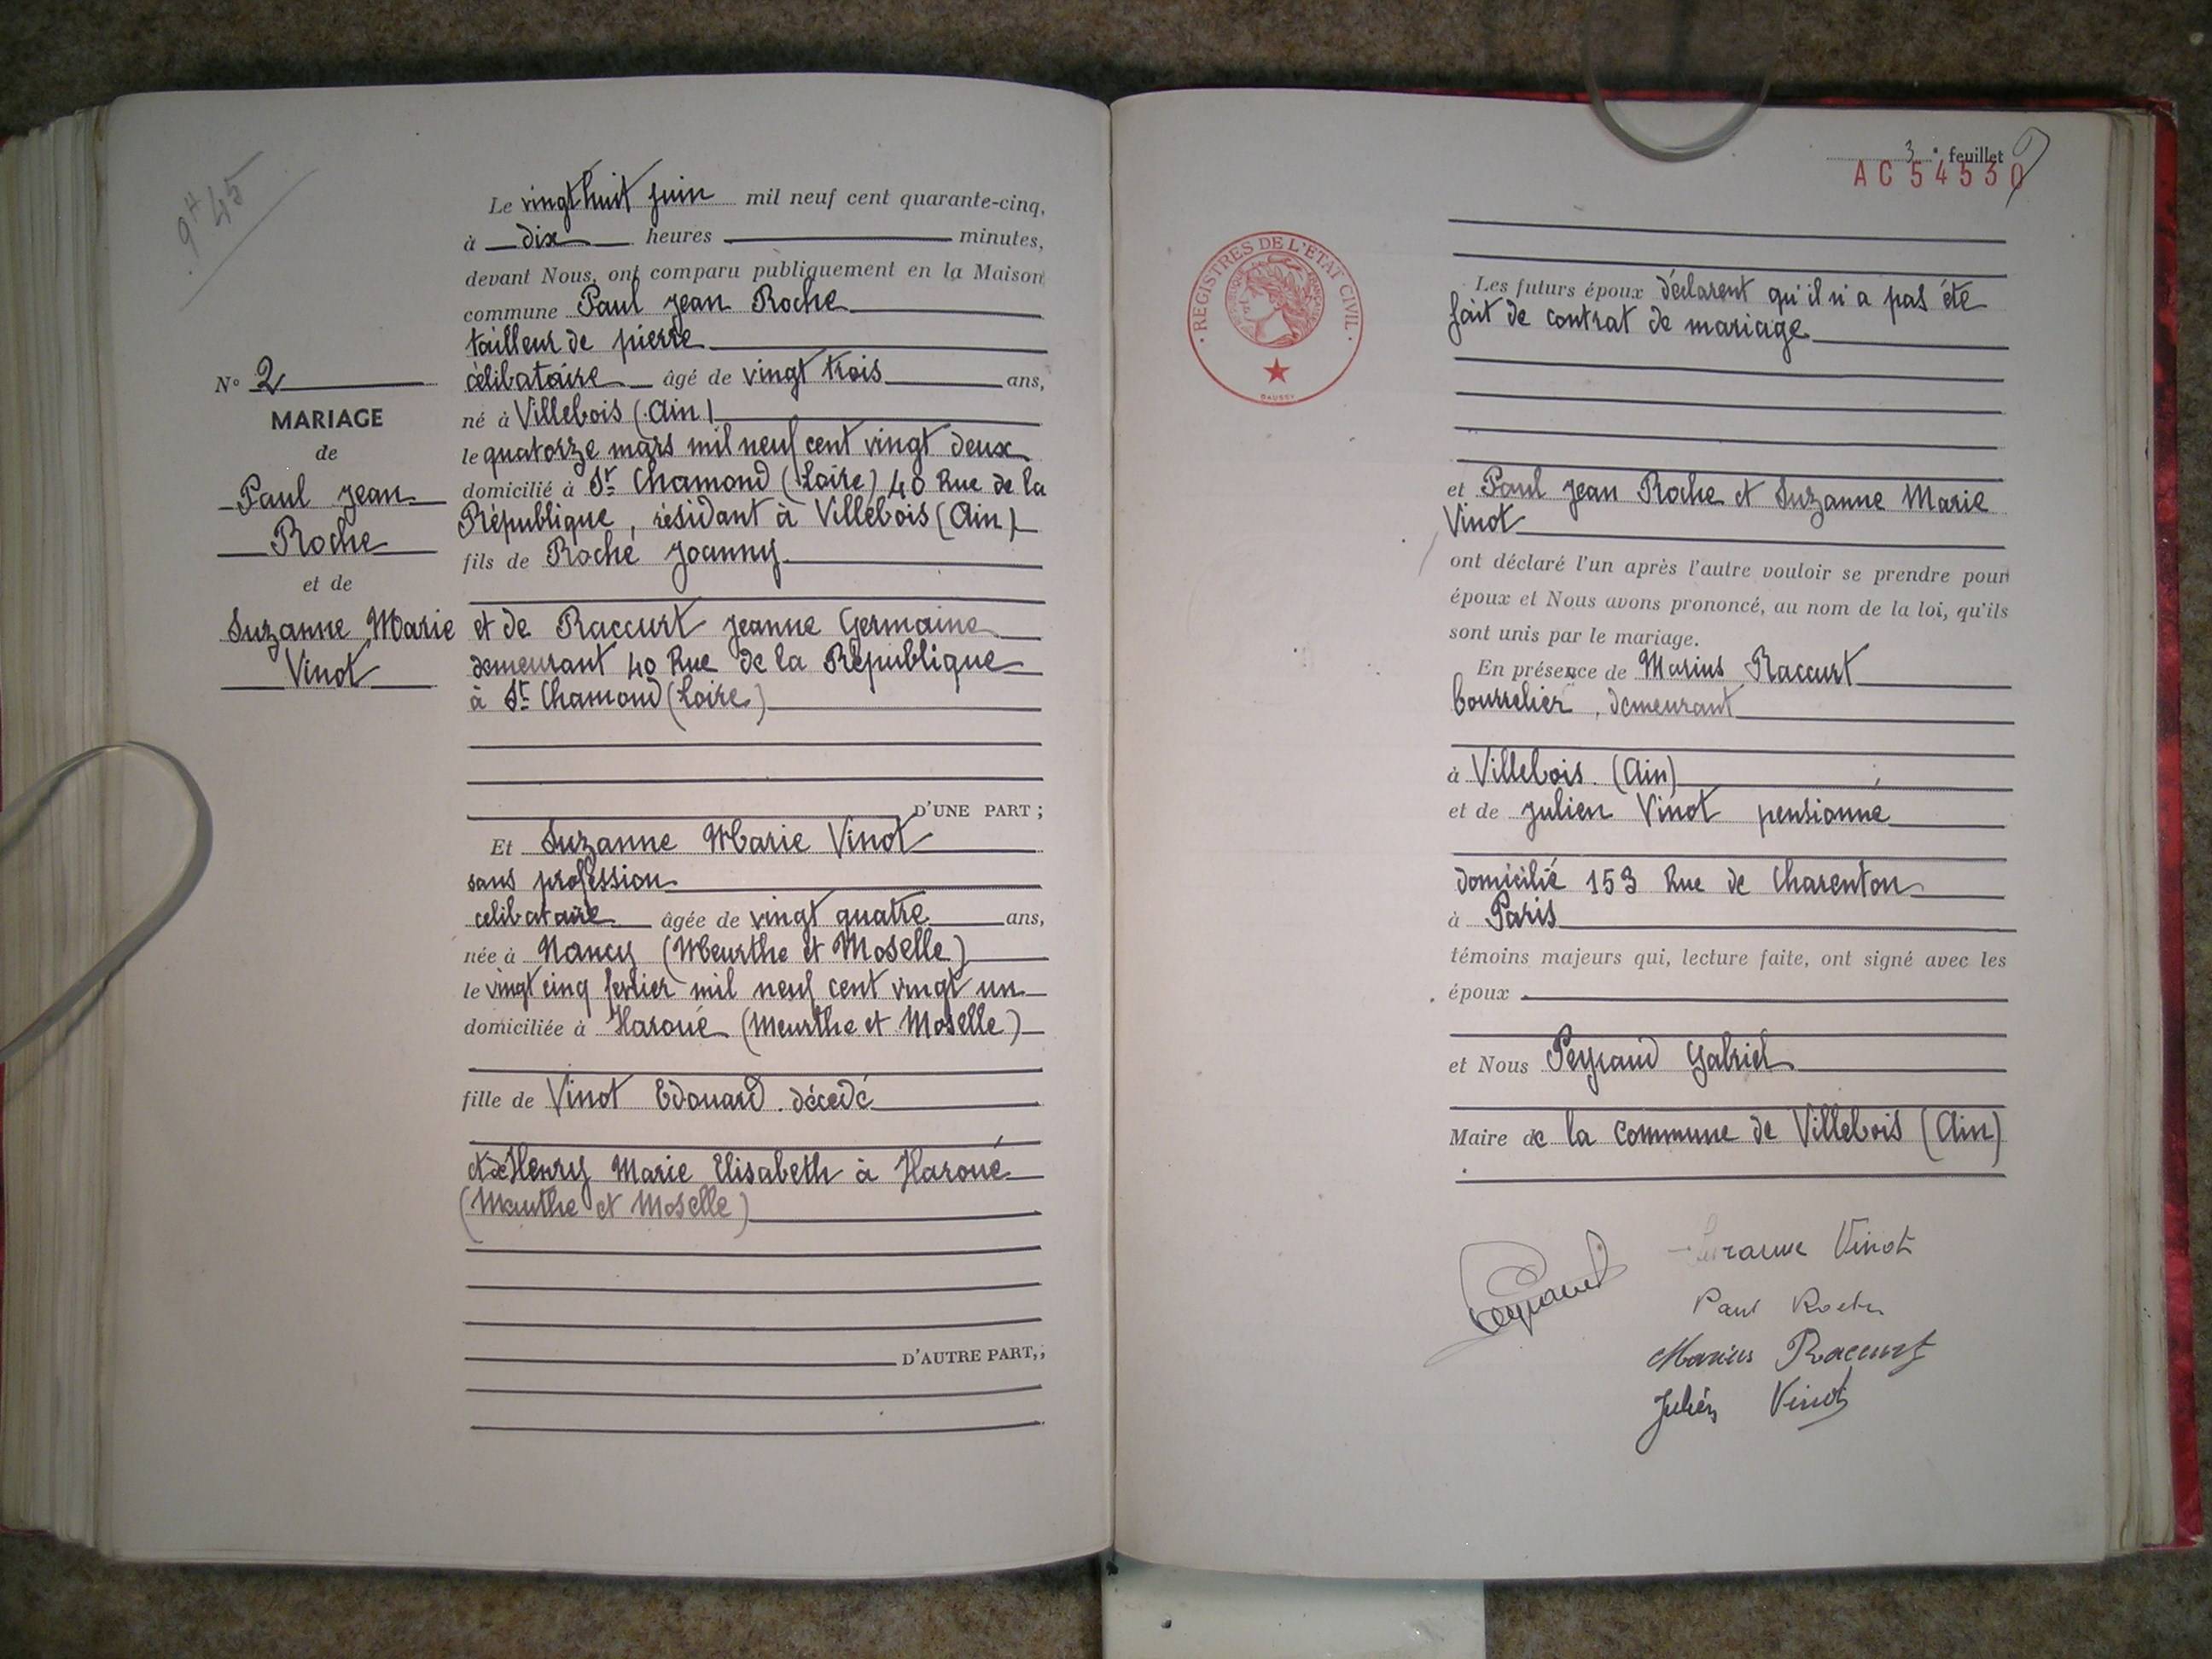 9H 45
Le vingt huit juin mil neuf cent quarante-cinq,
à dix heures minutes,
devant Nous, ont comparu publiquement en la Maison
commune Paul Jean Roche
tailleur de pierre
célibataire âgé de vingt trois ans,
né à Villebois (Ain)
le quatorze mars mil neuf cent vingt deux
domicilié à St Chamond (Loire) 40 Rue de la
République, résidant à Villebois (Ain)
fils de Roche Joanny
et de Raccurt Jeanne Germaine
demeurant 40 Rue de la République
à St Chamond (Loire)
D'UNE PART ;
Et Suzanne Marie Vinot
sans profession
célibataire âgée de vingt quatre ans,
née à Nancy (Meurthe et Moselle)
le vingt cinq fevrier mil neuf cent vingt un
domiciliée à Haroué (Meurthe et Moselle)
fille de Vinot Edouard décédé
et de Henry Marie Elisabeth à Haroué
(Meurthe et Moselle)
D'AUTRE PART,;
N° 2
MARIAGE
de
Paul Jean
Roche
et de
Suzanne Marie
Vinot
3e feuillet
AC 54530
REGISTRES DE L'ETAT CIVIL
DAUSSY
Les futurs époux déclarent qu'il n'a pas été
fait de contrat de mariage
et Paul Jean Roche et Suzanne Marie
Vinot
ont déclaré l'un après l'autre vouloir se prendre pour
époux et Nous avons prononcé, au nom de la loi, qu'ils
sont unis par le mariage.
En présence de Marius Raccurt
bourrelier, demeurant
à Villebois (Ain)
et de Julien Vinot pensionné
domicilié 153 Rue de Charenton
à Paris
témoins majeurs qui, lecture faite, ont signé avec les
époux
et Nous Peyraud Gabriel
Maire de la Commune de Villebois (Ain)
Suzanne Vinot
Peyraud
Paul Roche
Marius Raccurt
Julien Vinot